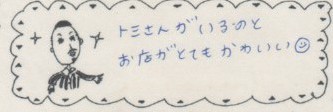 トミさんがいるのと
お店がとてもかわいい☺